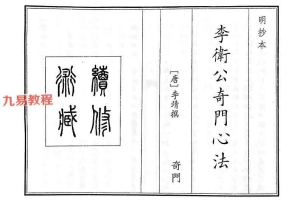 明抄本
李衛公奇門心法
[唐]李靖撰
奇門
續修
術藏
九易教程
www.989868.com